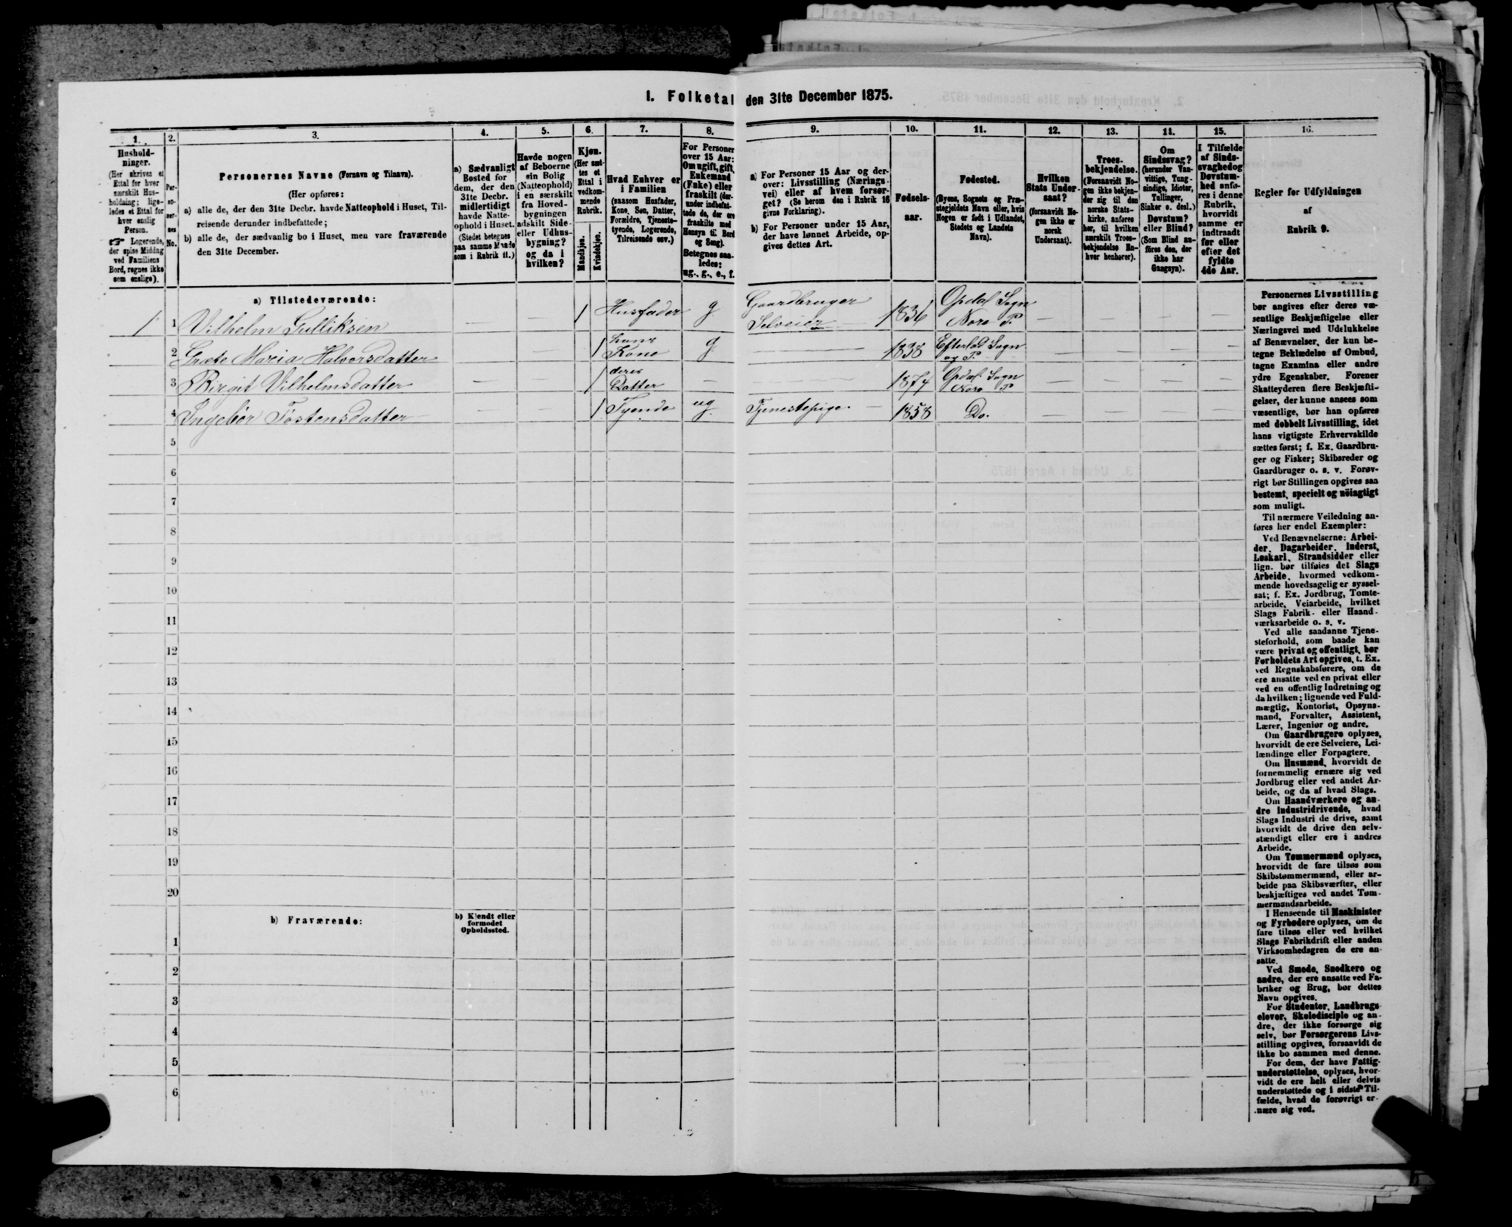 I. Folketal den 31te December 1875.
1. 2. 3. 4. 5. 6. 7. 8. 9. 10. 11. 12. 13. 14. 15. 16.
Hushold-
ninger.
(Her skrives et
Ettal for hver
særskilt Hus-
holdning; lige-
ledes et Ettal for
hver enslig
Person.
☞ Logerende,
der spise Middag
ved Familiens
Bord, regnes ikke
som enslige).
Per-
so-
ner-
nes
No.
Personernes Navne (Fornavn og Tilnavn).
(Her opføres:
a) alle de, der den 31te Decbr. havde Natteophold i Huset, Til-
reisende derunder indbefattede;
b) alle de, der sædvanlig bo i Huset, men vare fraværende
den 31te December.
a) Sædvanligt
Bosted for
dem, der den
31te Decbr.
midlertidigt
havde Natte-
ophold i Huset.
(Stedet betegnes
paa samme Maade
som i Rubrik 11.)
Havde nogen
af Beboerne
sin Bolig
(Natteophold)
i en særskilt
fra Hoved-
bygningen
adskilt Side-
eller Udhus-
bygning?
og da i
hvilken?
Kjøn.
(Her sæt-
tes et
Ettal i
vedkom-
mende
Rubrik.
Mandkjøn.
Kvindekjøn.
Hvad Enhver er
i Familien
(saasom Husfader,
Kone, Søn, Datter,
Forældre, Tjeneste-
tyende, Logerende,
Tilreisende osv.)
For Personer
over 15 Aar:
Om ugift, gift,
Enkemand
(Enke) eller
fraskilt (der-
under indbefat-
tede de, der ere
fraskilte med
Hensyn til Bord
og Seng).
Betegnes saa-
ledes:
ug., g., e., f.
a) For Personer 15 Aar og der-
over: Livsstilling (Nærings-
vei) eller af hvem forsør-
get? (Se herom den i Rubrik 16
givne Forklaring).
b) For Personer under 15 Aar,
der have lønnet Arbeide, op-
gives dettes Art.
Fødsels-
aar.
Fødested.
(Byens, Sognets og Præ-
stegjeldets Navn eller, hvis
Nogen er født i Udlandet,
Stedets og Landets
Navn).
Hvilken
Stats Under-
saat?
(forsaavidt No-
gen ikke er
norsk
Undersaat).
Troes-
bekjendelse.
(Forsaavidt No-
gen ikke bekjen-
der sig til den
norske Stats-
kirke, anføres
her, til hvilken
særskilt Troes-
bekjendelse En-
hver henhører).
Om
Sindssvag?
(herunder Van-
vittige, Tung-
sindige, Idioter,
Tullinger,
Sinker o. desl.)
Døvstum?
eller Blind?
(Som Blind an-
føres den, der
ikke har
Gangsyn).
I Tilfælde
af Sinds-
svaghed og
Døvstum-
hed anfø-
res i denne
Rubrik,
hvorvidt
samme er
indtraadt
før eller
efter det
fyldte
4de Aar.
Regler for Udfyldningen
af
Rubrik 9.
a) Tilstedeværende:
1 1 Vilhelm Gulliksen — — 1 Husfader g Gaardbruger Selveier 1836 Opdal Sogn Nore P. — — — —
2 Grete Maria Halvorsdatter — — 1 hans Kone g — 1838 Efteløt Sogn og P. — — — —
3 Birgit Vilhelmsdatter — — 1 deres Datter — — 1874 Opdal Sogn Nore P — — — —
4 Ingebør Tostensdatter — — 1 Tyende ug Tjenestepige. — 1858 Do. — — — —
5
6
7
8
9
10
11
12
13
14
15
16
17
18
19
20
b) Fraværende:
b) Kjendt eller
formodet
Opholdssted.
1
2
3
4
5
6
Personernes Livsstilling
bør angives efter deres væ-
sentlige Beskjæftigelse eller
Næringsvei med Udelukkelse
af Benævnelser, der kun be-
tegne Beklædelse af Ombud,
tagne Examina eller andre
ydre Egenskaber. Forener
Skatteyderen flere Beskjæfti-
gelser, der kunne ansees som
væsentlige, bør han opføres
med dobbelt Livsstilling, idet
hans vigtigste Erhvervskilde
sættes først; f. Ex. Gaardbru-
ger og Fisker; Skibsreder og
Gaardbruger o. s. v. Forøv-
rigt bør Stillingen opgives saa
bestemt, specielt og nöiagtigt
som muligt.
Til nærmere Veiledning an-
føres her endel Exempler:
Ved Benævnelserne: Arbei-
der, Dagarbeider, Inderst,
Løskarl, Strandsidder eller
lign. bør tilføies det Slags
Arbeide, hvormed vedkom-
mende hovedsagelig er syssel-
sat; f. Ex. Jordbrug, Tomte-
arbeide, Veiarbeide, hvilket
Slags Fabrik- eller Haand-
værksarbeide o. s. v.
Ved alle saadanne Tjene-
steforhold, som baade kan
være privat og offentligt, bør
Forholdets Art opgives, f. Ex.
ved Regnskabsførere, om de
ere ansatte ved en privat eller
ved en offentlig Indretning og
da hvilken; lignende ved Fuld-
mægtig, Kontorist, Opsyns-
mand, Forvalter, Assistent,
Lærer, Ingeniør og andre.
Om Gaardbrugere oplyses,
hvorvidt de ere Selveiere, Lei-
lændinge eller Forpagtere.
Om Husmænd, hvorvidt de
fornemmelig ernære sig ved
Jordbrug eller ved andet Ar-
beide, og da af hvad Slags.
Om Haandværkere og an-
dre Industridrivende, hvad
Slags Industri de drive, samt
hvorvidt de drive den selv-
stændigt eller ere i andres
Arbeide.
Om Tømmermænd oplyses,
hvorvidt de fare tilsøs som
Skibstømmermænd, eller ar-
beide paa Skibsværfter, eller
beskjæftiges ved andet Tøm-
mermandsarbeide.
I Henseende til Maskinister
og Fyrbødere oplyses, om de
fare tilsøs eller ved hvilket
Slags Fabrikdrift eller anden
Virksomhedsgren de ere an-
satte.
Ved Smede, Snedkere og
andre, der ere ansatte ved Fa-
briker og Brug, bør dettes
Navn opgives.
For Studenter, Landbrugs-
elever, Skoledisciple og an-
dre, der ikke forsørge sig
selv, bør Forsørgerens Livs-
stilling opgives, forsaavidt de
ikke bo sammen med denne.
For dem, der have Fattig-
understøttelse, oplyses, hvor-
vidt de ere helt eller delvis
understøttede og i sidste Til-
fælde, hvad de forøvrigt er-
nære sig ved.